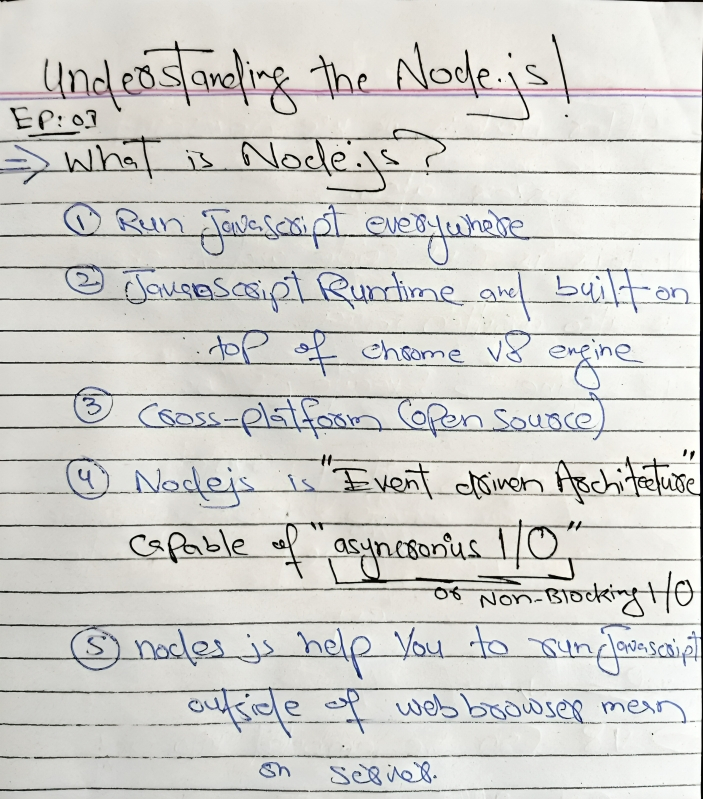 Understanding the Node.js!
EP:03
⇒ What is Node.js?
① Run Javascript everywhere
② Javascript Runtime and built-on
top of chrome v8 engine
③ Cross-platform (open source)
④ Nodejs is "Event driven Architecture"
capable of "asyncronius I/O"
or Non-Blocking I/O
⑤ nodes js help you to run Javascript
outside of web browser mean
on server.